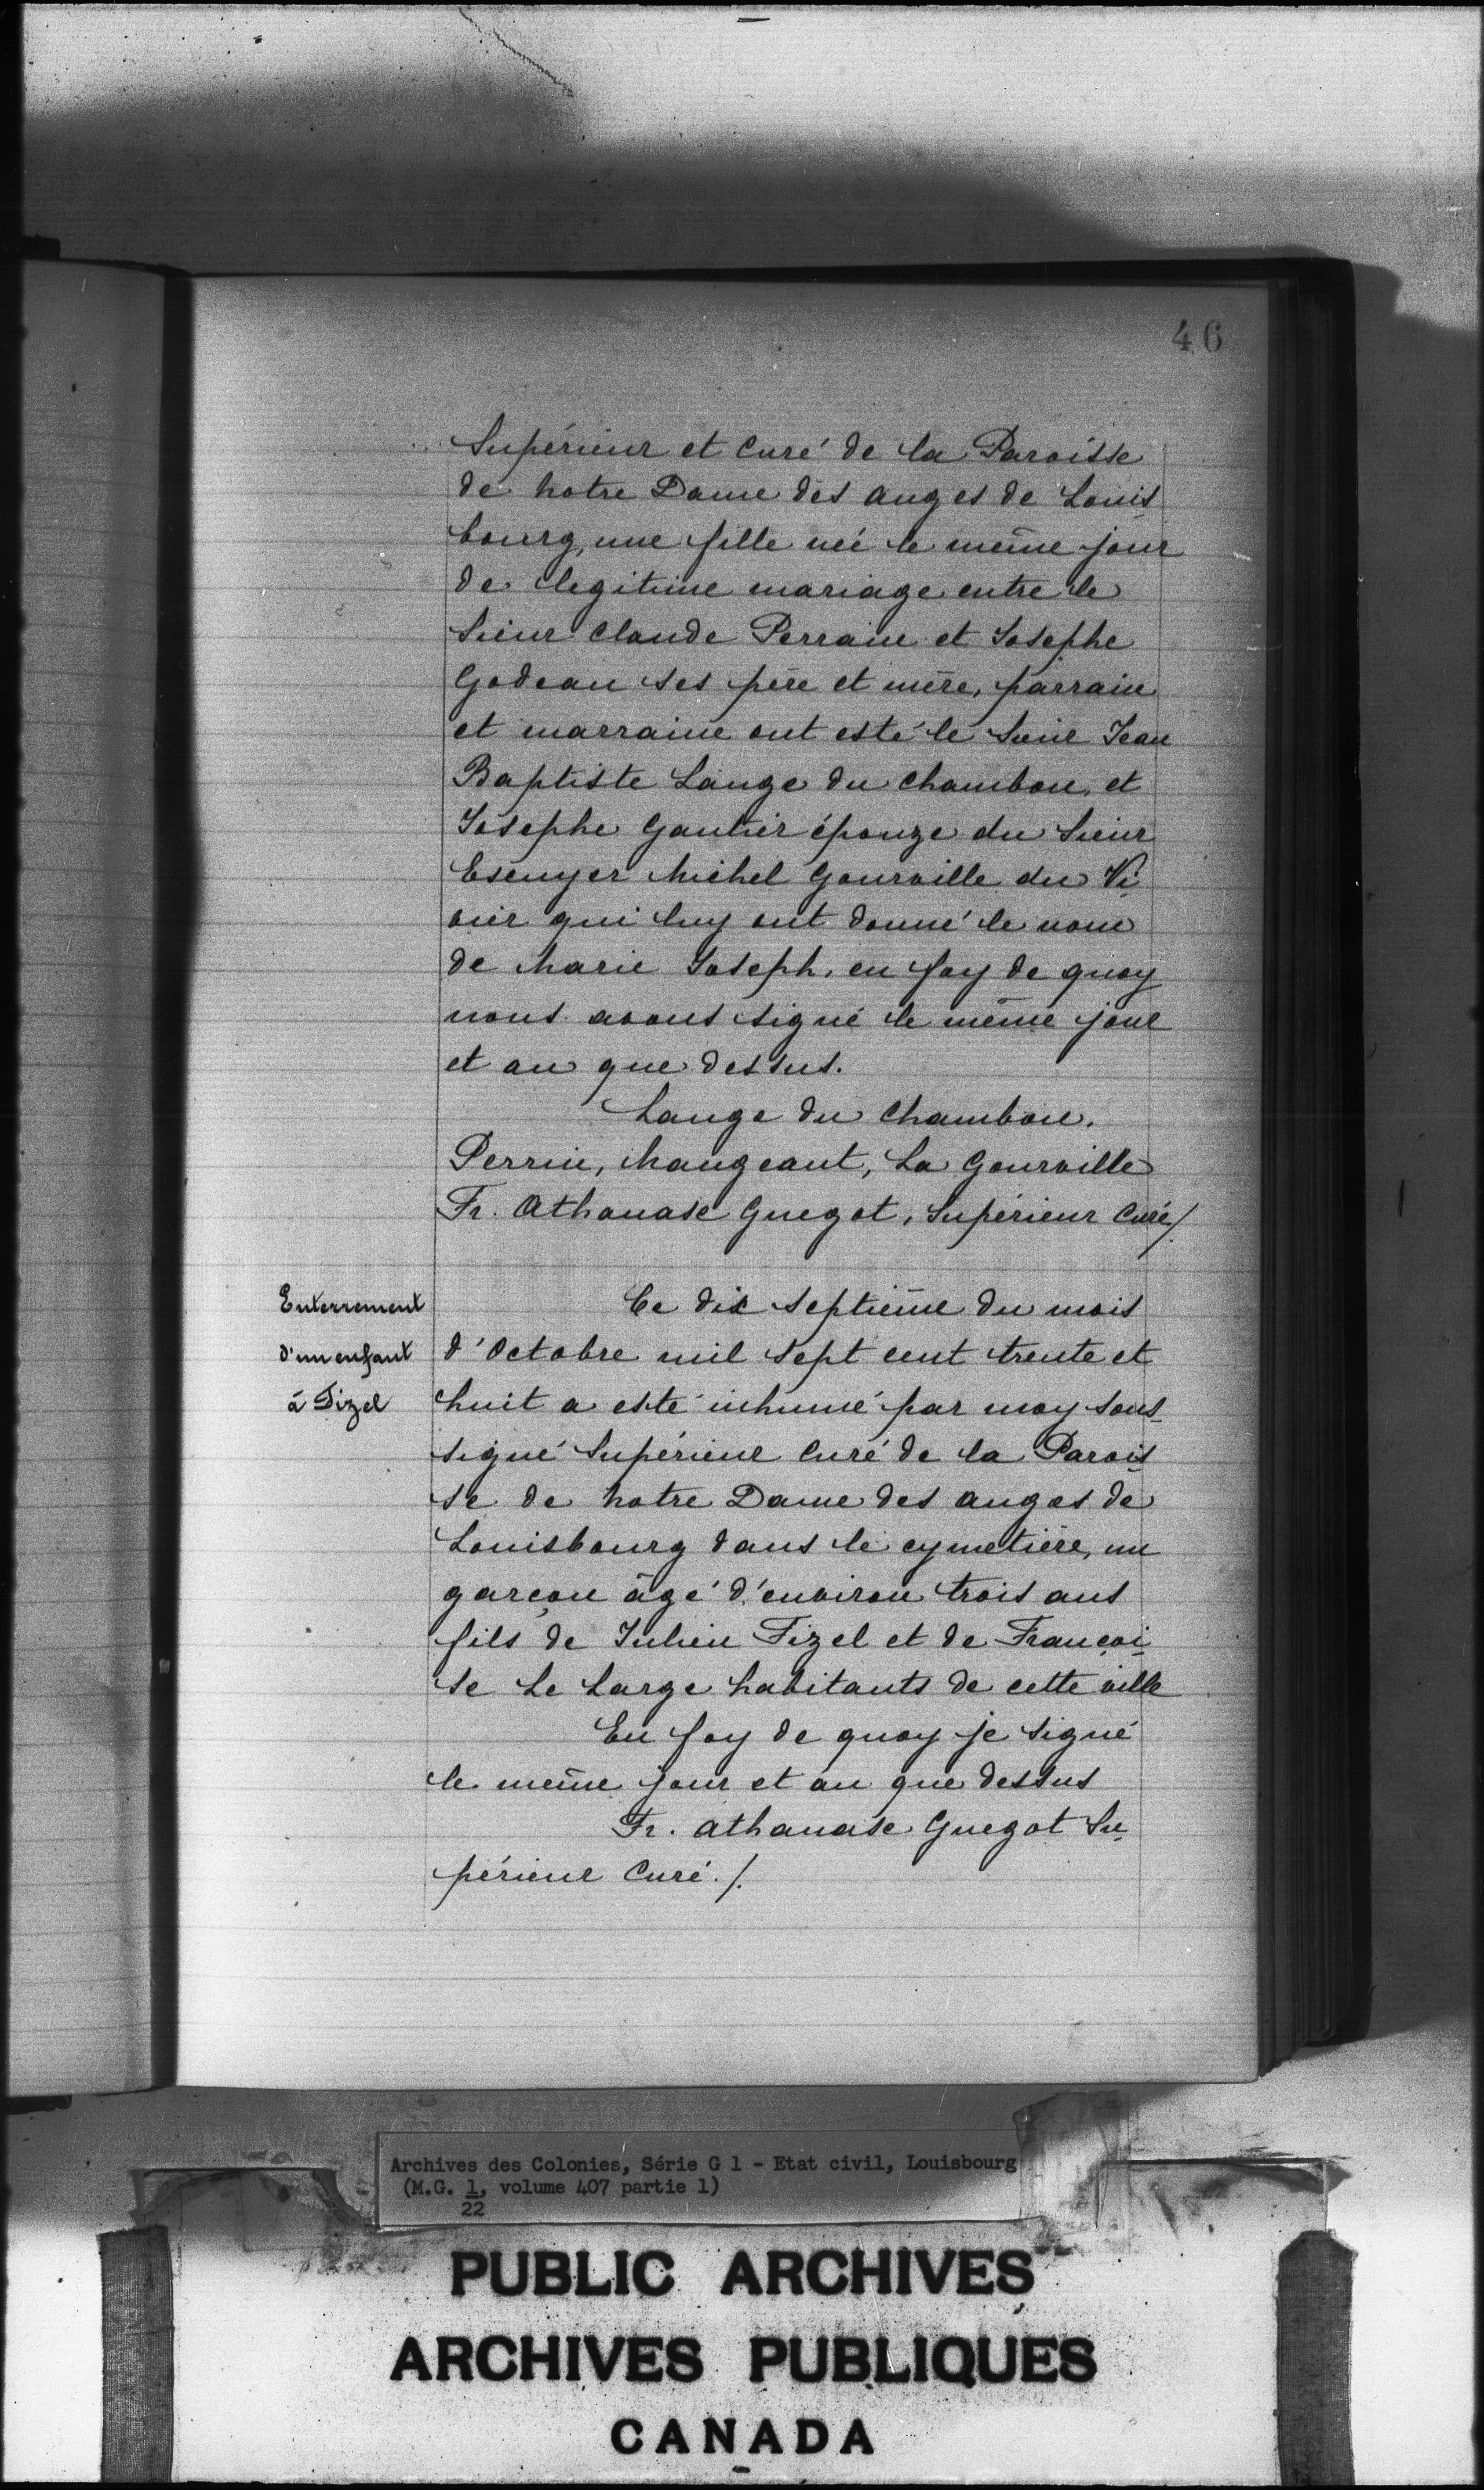 46
Supérieur et Curé de la Paroisse
de notre Dame des anges de Louis
bourg, une fille née le même jour
de legitime mariage entre le
Sieur Claude Perrain et Josephe
Godeau ses père et mère, parrain
et marraine ont esté le Sieur Jean
Baptiste Lange du Chambon, et
Josephe Gautier épouze du Sieur
Escuyer Michel Gourville du Vi
vier qui luy ont donné le nom
de Marie Joseph, en foy de quoy
nous avons signé le même jour
et an que dessus.
Lange du Chambon.
Perrin, Mangeant, La Gourville
Fr. Athanase Guegot, Supérieur Curé/.
Enterrement
d'un enfant
à Fizel
Ce dix septième du mois
d'Octobre mil sept cent trente et
huit a esté inhumé par moy sous-
signé Supérieur Curé de la Parois-
se de notre Dame des anges de
Louisbourg dans le cymetière, un
garçon âgé d'environ trois ans
fils de Julien Fizel et de Françoi-
se Le Large habitants de cette ville
En foy de quoy je signé
le même jour et an que dessus
Fr. Athanase Guegot Su-
périeur Curé./.
Archives des Colonies, Série G 1 - Etat civil, Louisbourg
(M.G. 1, volume 407 partie 1)
22
PUBLIC ARCHIVES
ARCHIVES PUBLIQUES
CANADA